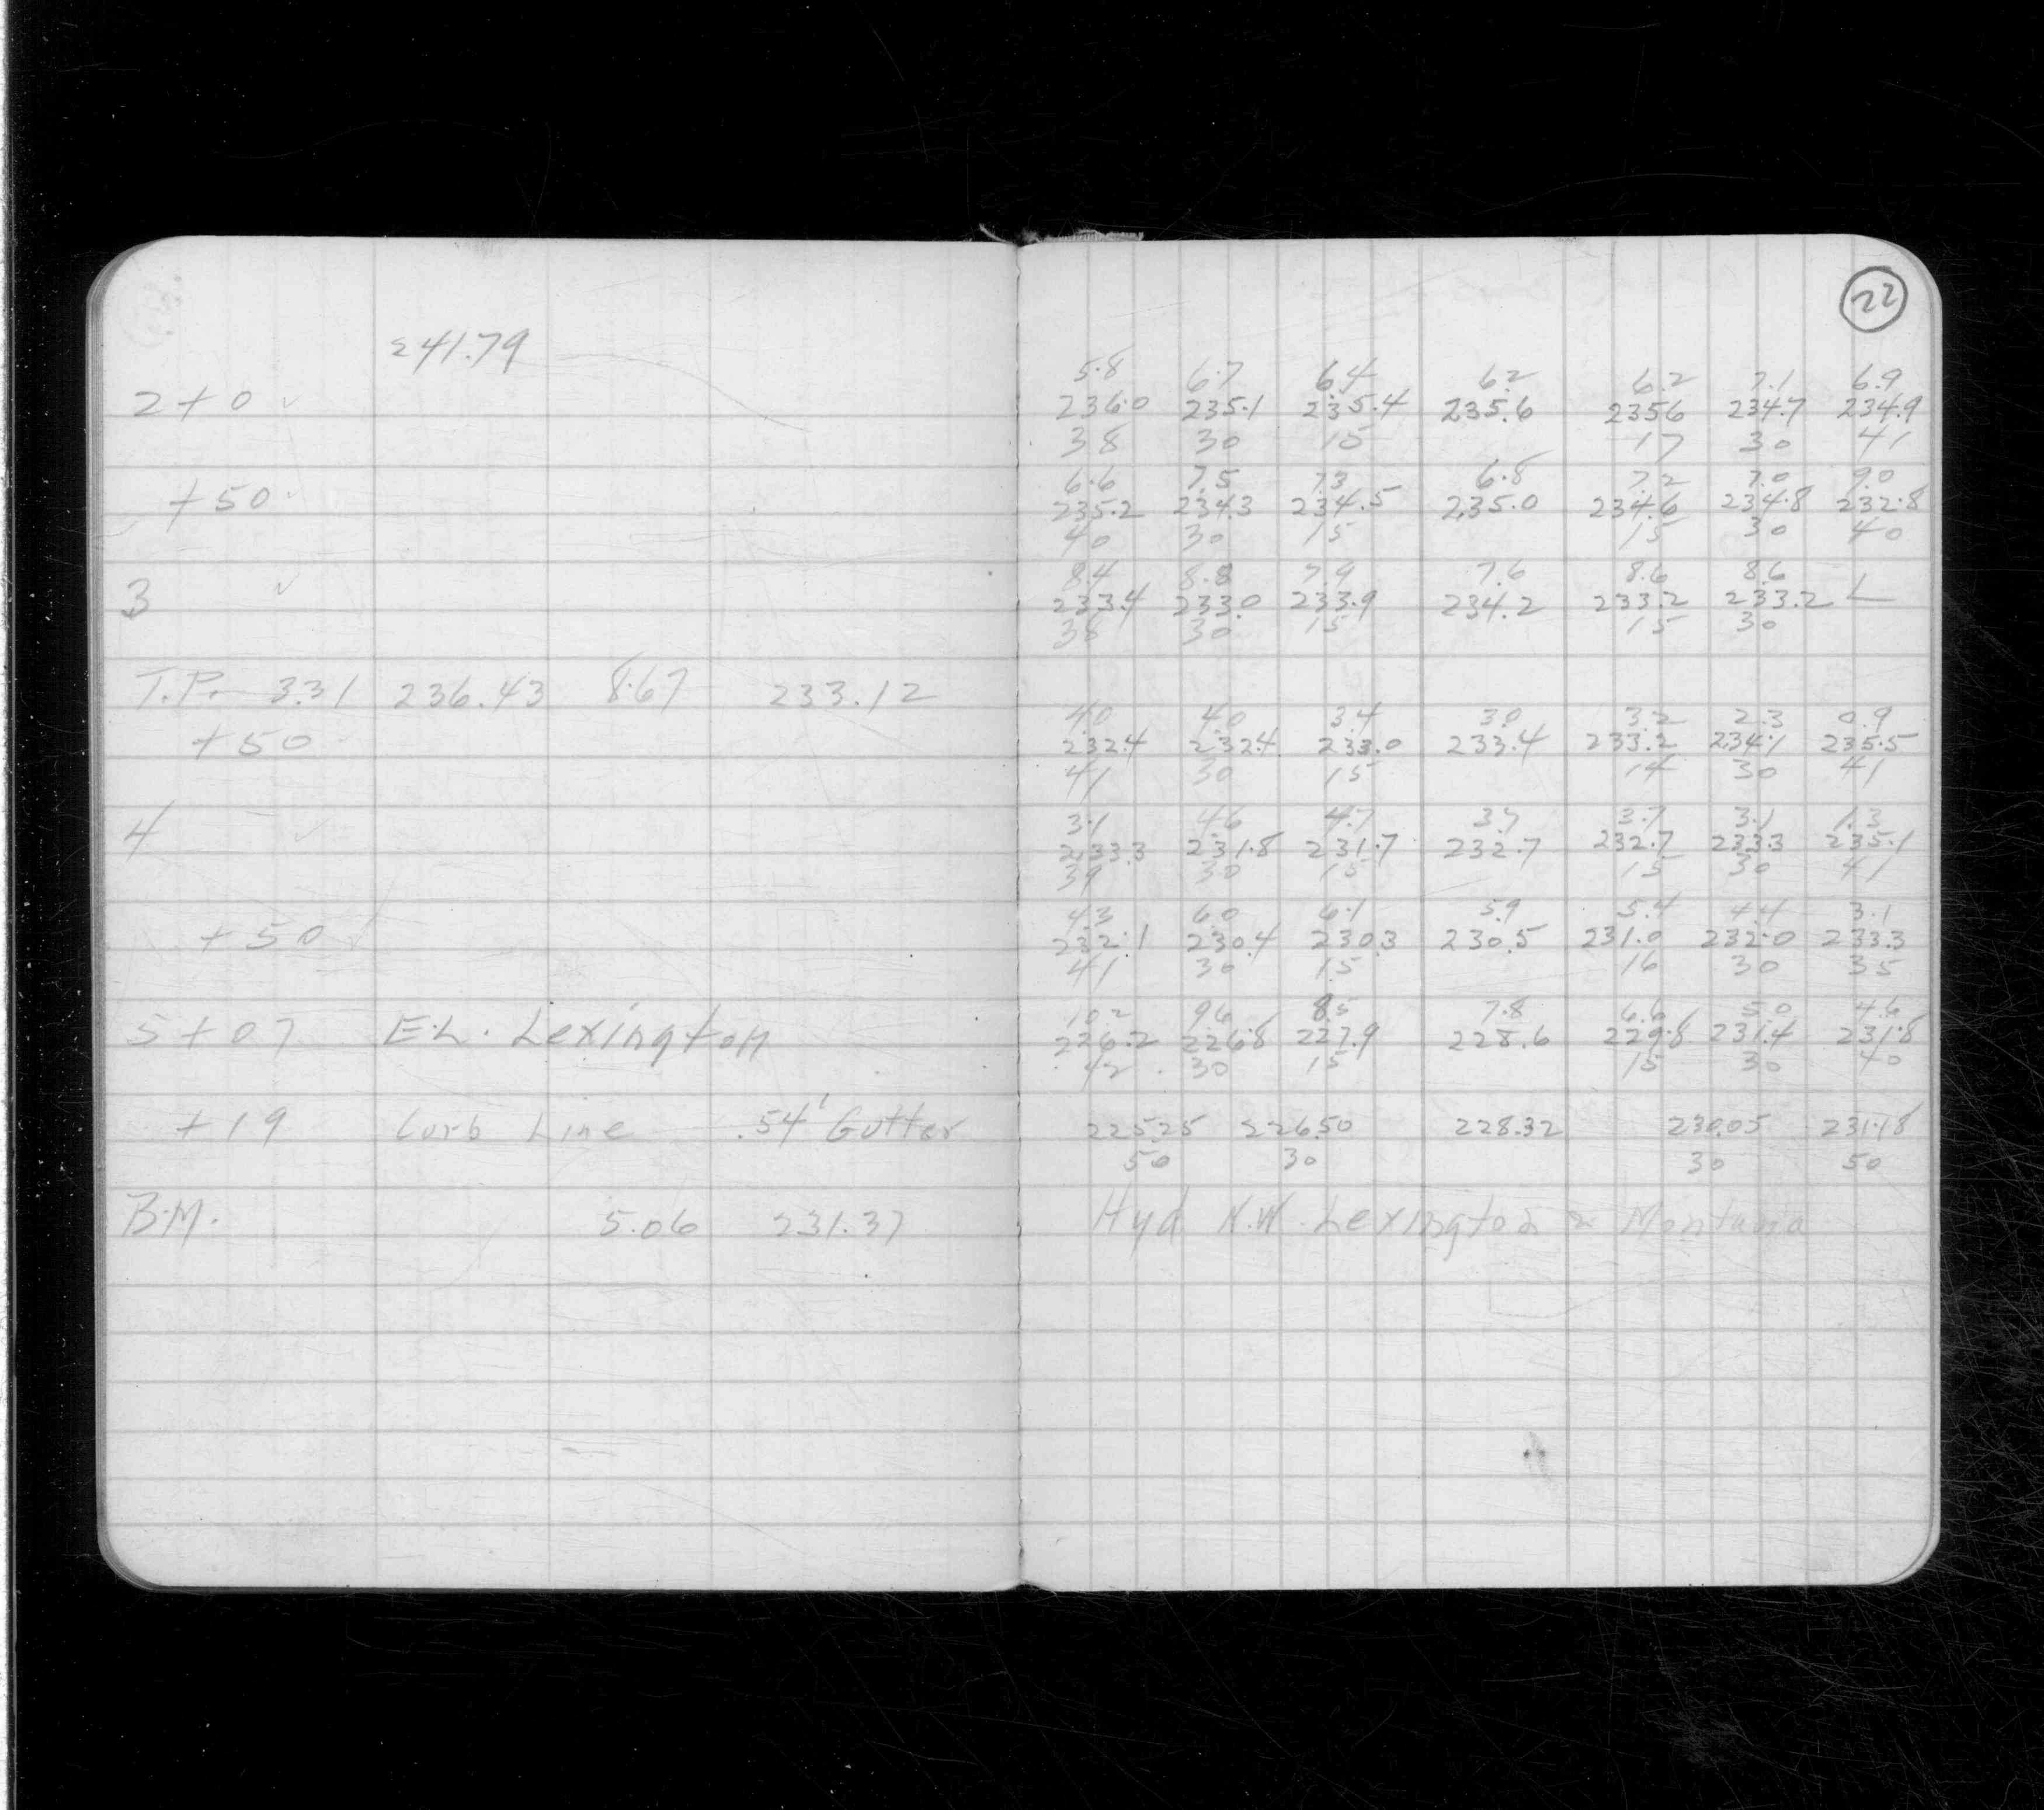 22
241.79
5.8 6.7 6.4 6.2 6.2 7.1 6.9
2+0 ✓ 236.0 235.1 235.4 235.6 235.6 234.7 234.9
38 30 15 17 30 41
6.6 7.5 7.3 6.8 7.2 7.0 9.0
+50 ✓ 235.2 234.3 234.5 235.0 234.6 234.8 232.8
40 30 15 15 30 40
8.4 8.8 7.9 7.6 8.6 8.6
3 ✓ 233.4 233.0 233.9 234.2 233.2 233.2 L
38 30 15 15 30
T.P. 3.31 236.43 8.67 233.12
4.0 4.0 3.4 3.0 3.2 2.3 0.9
+50 232.4 232.4 233.0 233.4 233.2 234.1 235.5
41 30 15 14 30 41
3.1 4.6 4.7 3.7 3.7 3.1 1.3
4 ✓ 233.3 231.8 231.7 232.7 232.7 233.3 235.1
39 30 15 15 30 41
4.3 6.0 6.1 5.9 5.4 4.4 3.1
+50 ✓ 232.1 230.4 230.3 230.5 231.0 232.0 233.3
41 30 15 16 30 35
10.2 9.6 8.5 7.8 6.6 5.0 4.6
5+07 E.L. Lexington 226.2 226.8 227.9 228.6 229.8 231.4 231.8
42 30 15 15 30 40
+19 Curb Line .54' Gutter 225.25 226.50 228.32 230.05 231.18
50 30 30 50
B.M. 5.06 231.37 Hyd N.W. Lexington & Montana